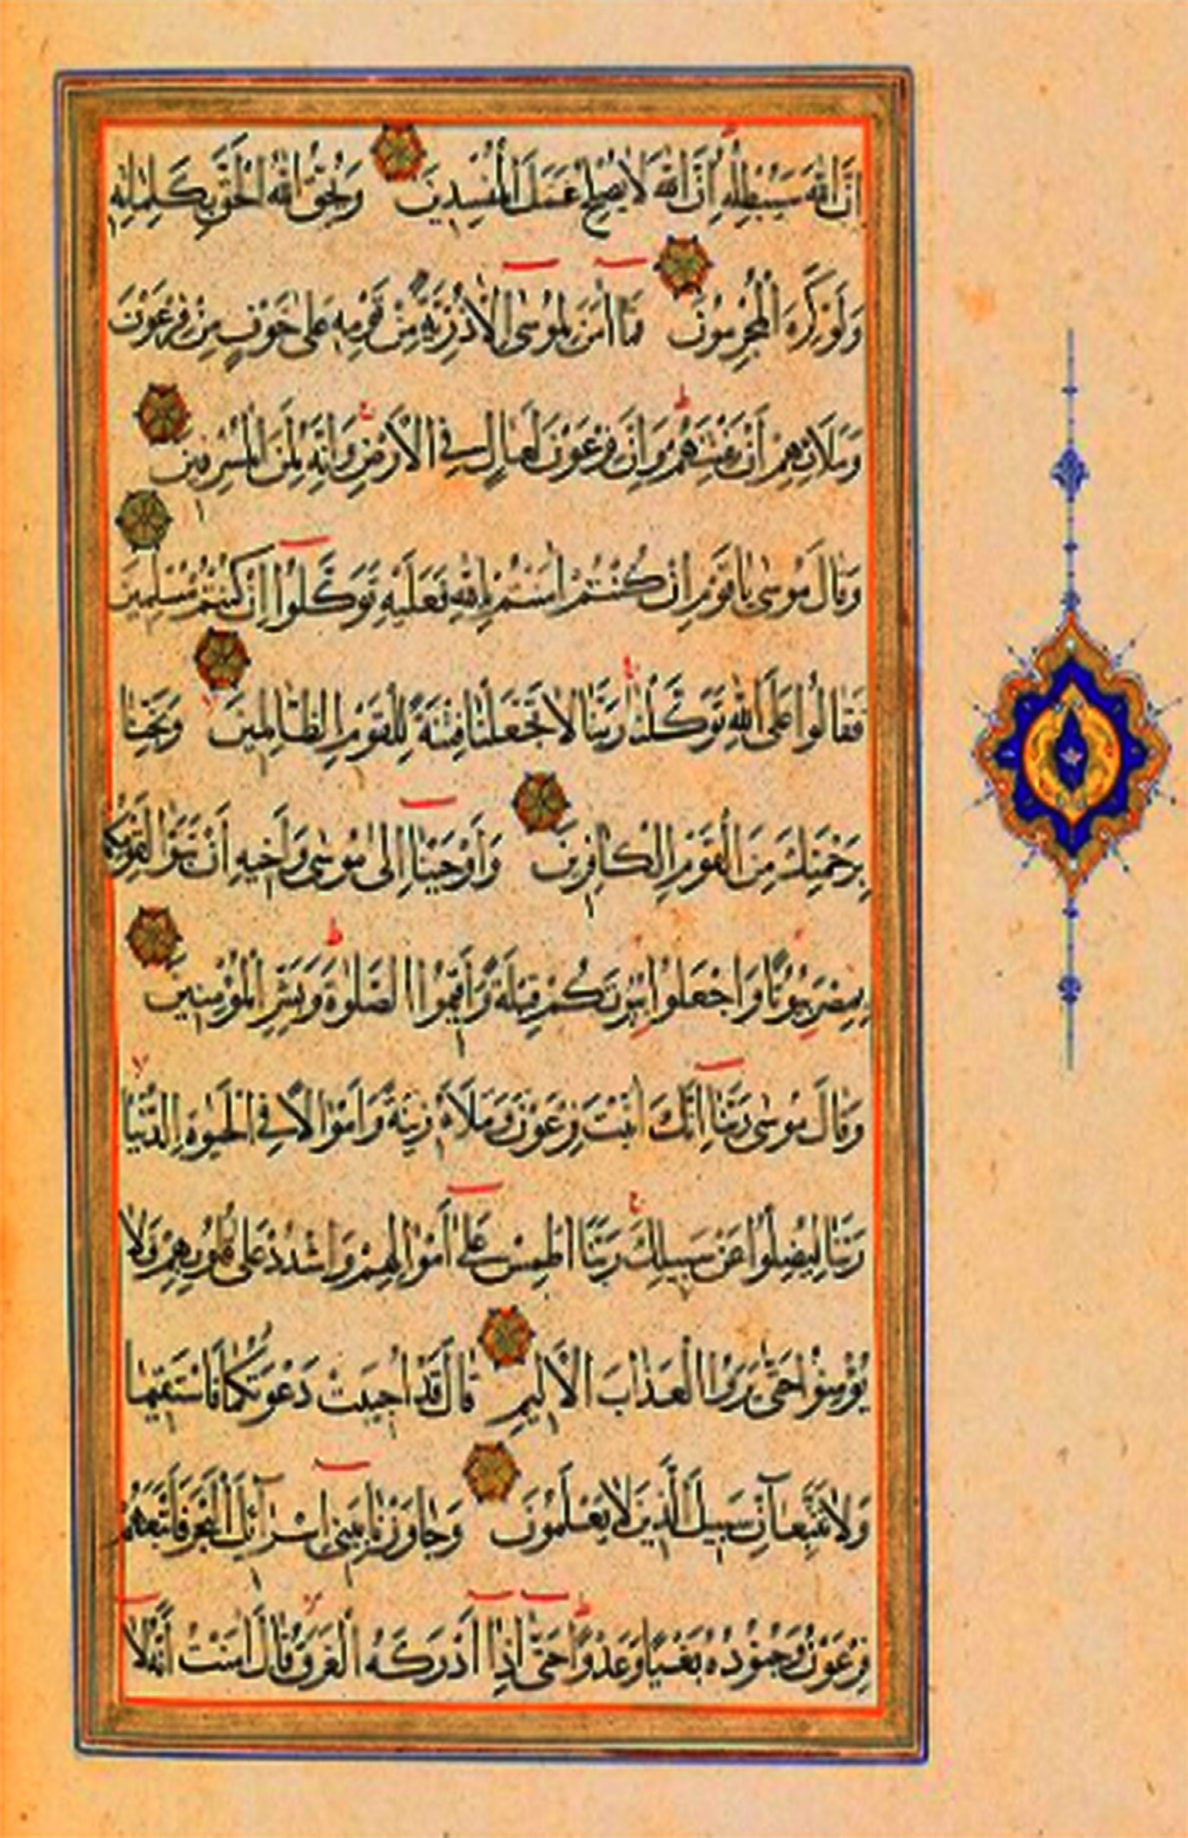 اِنَّ اللّٰهَ سَيُبْطِلُهُ اِنَّ اللّٰهَ لَا يُصْلِحُ عَمَلَ الْمُفْسِدِينَ وَيُحِقُّ اللّٰهُ الْحَقَّ بِكَلِمَاتِهِ
وَلَوْ كَرِهَ الْمُجْرِمُونَ فَمَا اٰمَنَ لِمُوسٰى اِلَّا ذُرِّيَّةٌ مِنْ قَوْمِهِ عَلٰى خَوْفٍ مِنْ فِرْعَوْنَ
وَمَلَائِهِمْ اَنْ يَفْتِنَهُمْ وَاِنَّ فِرْعَوْنَ لَعَالٍ فِي الْاَرْضِ وَاِنَّهُ لَمِنَ الْمُسْرِفِينَ
وَقَالَ مُوسٰى يَا قَوْمِ اِنْ كُنْتُمْ اٰمَنْتُمْ بِاللّٰهِ فَعَلَيْهِ تَوَكَّلُوا اِنْ كُنْتُمْ مُسْلِمِينَ
فَقَالُوا عَلَى اللّٰهِ تَوَكَّلْنَا رَبَّنَا لَا تَجْعَلْنَا فِتْنَةً لِلْقَوْمِ الظَّالِمِينَ وَنَجِّنَا
بِرَحْمَتِكَ مِنَ الْقَوْمِ الْكَافِرِينَ وَاَوْحَيْنَا اِلٰى مُوسٰى وَاَخِيهِ اَنْ تَبَوَّاٰ لِقَوْمِكُمَا
بِمِصْرَ بُيُوتًا وَاجْعَلُوا بُيُوتَكُمْ قِبْلَةً وَاَقِيمُوا الصَّلٰوةَ وَبَشِّرِ الْمُؤْمِنِينَ
وَقَالَ مُوسٰى رَبَّنَا اِنَّكَ اٰتَيْتَ فِرْعَوْنَ وَمَلَاَهُ زِينَةً وَاَمْوَالًا فِي الْحَيٰوةِ الدُّنْيَا
رَبَّنَا لِيُضِلُّوا عَنْ سَبِيلِكَ رَبَّنَا اطْمِسْ عَلٰى اَمْوَالِهِمْ وَاشْدُدْ عَلٰى قُلُوبِهِمْ فَلَا
يُؤْمِنُوا حَتّٰى يَرَوُا الْعَذَابَ الْاَلِيمَ قَالَ قَدْ اُجِيبَتْ دَعْوَتُكُمَا فَاسْتَقِيمَا
وَلَا تَتَّبِعَآنِّ سَبِيلَ الَّذِينَ لَا يَعْلَمُونَ وَجَاوَزْنَا بِبَنِي اِسْرَآئِلَ الْبَحْرَ فَاَتْبَعَهُمْ
فِرْعَوْنُ وَجُنُودُهُ بَغْيًا وَعَدْوًا حَتّٰى اِذَا اَدْرَكَهُ الْغَرَقُ قَالَ اٰمَنْتُ اَنَّهُ لَا